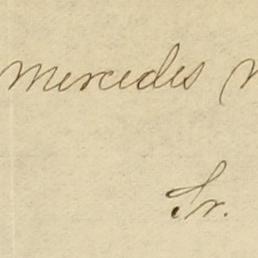 Mercedes
Sr.